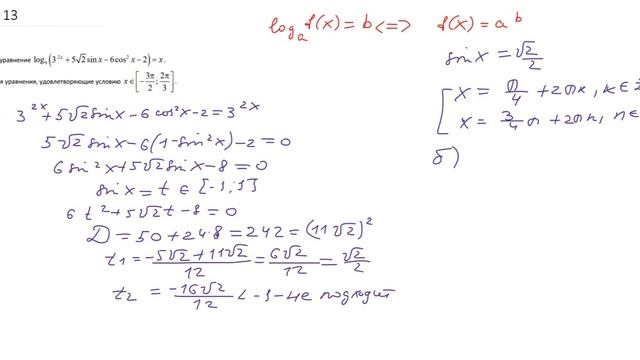 13
log_a f(x) = b <=> f(x) = a^b
уравнение log_9 (3^{2x} + 5√2 sin x − 6cos² x − 2) = x.
уравнения, удовлетворяющие условию x ∈ [−3π/2; 2π/3].
3^{2x} + 5√2 sin x − 6 cos² x − 2 = 3^{2x}
5√2 sin x − 6(1 − sin² x) − 2 = 0
6 sin² x + 5√2 sin x − 8 = 0
sin x = t ∈ [−1; 1]
6t² + 5√2 t − 8 = 0
D = 50 + 24·8 = 242 = (11√2)²
t₁ = (−5√2 + 11√2)/12 = 6√2/12 = √2/2
t₂ = −16√2/12 < −1 − не подходит
sin x = √2/2
[ x = π/4 + 2πk, k ∈
x = 3/4 π + 2πn, n ∈
б)